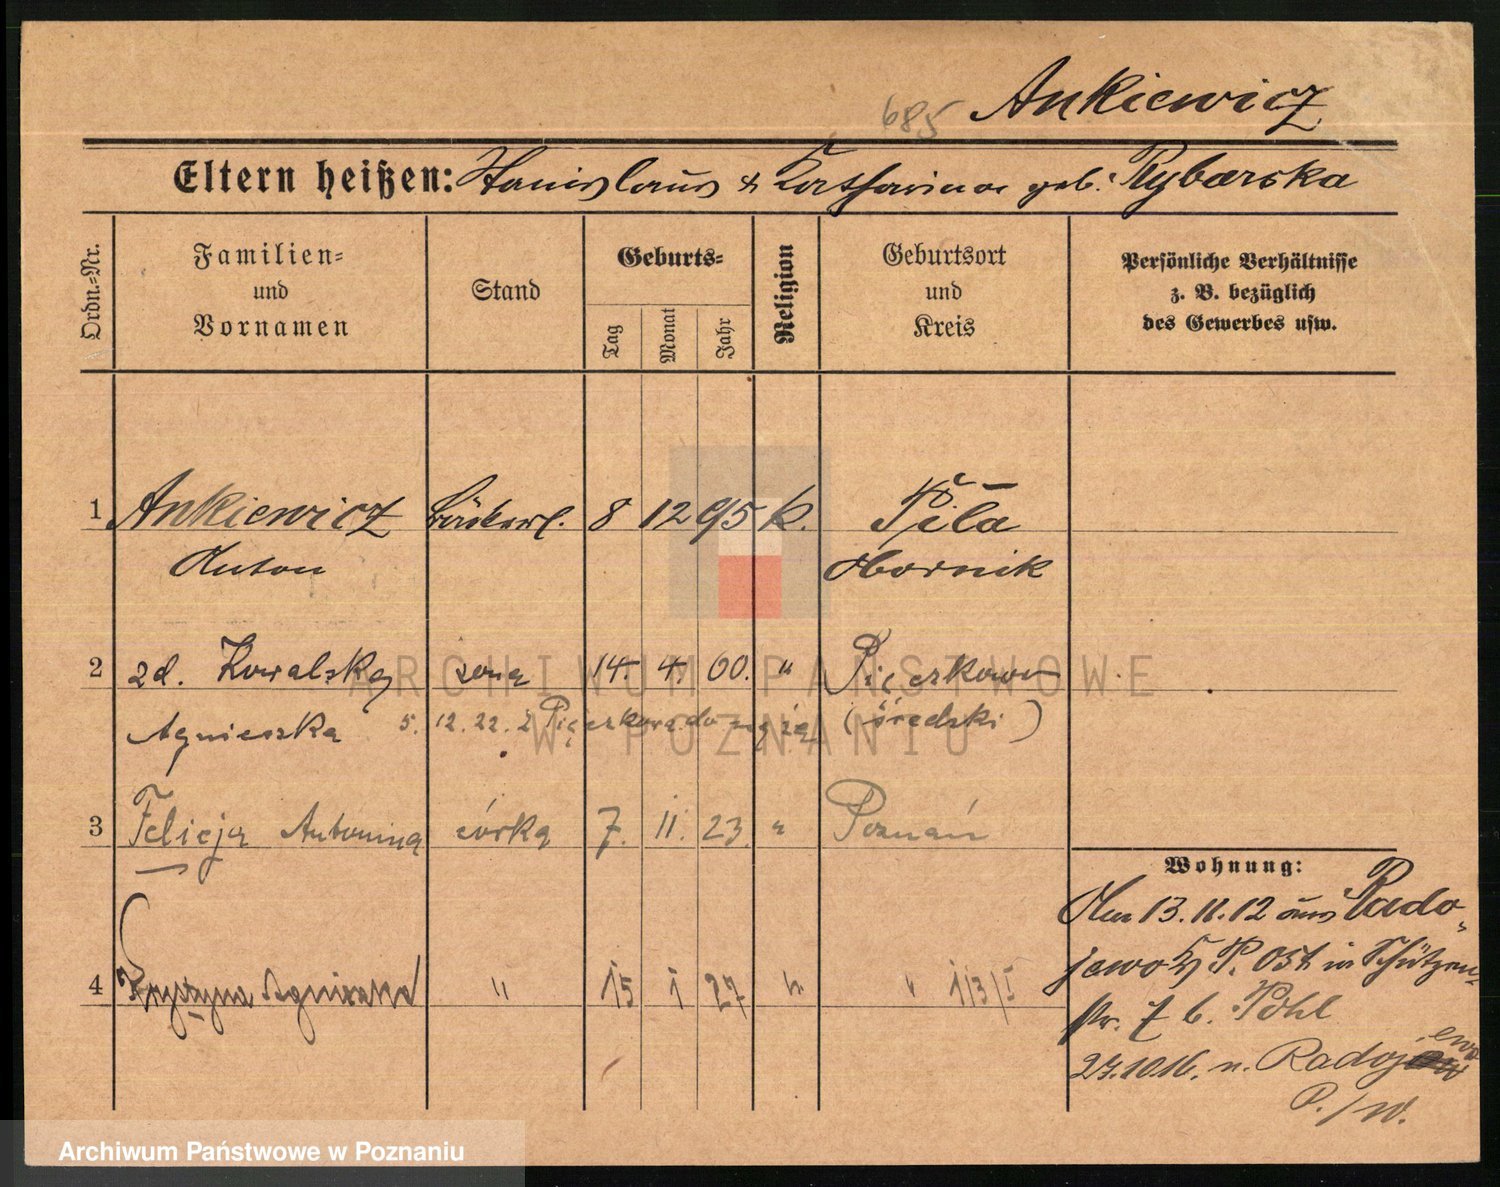 685 Ankiewicz
Eltern heißen: Stanislaus & Katharina geb. Rybarska
Ordn.=Nr.
Familien=
und
Vornamen
Stand
Geburts=
Tag
Monat
Jahr
Religion
Geburtsort
und
Kreis
Persönliche Verhältnisse
z. B. bezüglich
des Gewerbes usw.
1 Ankiewicz Bäckerl. 8 12 95 k. Piła
Anton Obornik
2 zd. Kowalska żona 14. 4. 00. " Pięczkowo
Agnieszka 5. 12. 22. z Pięczkowa do męża (średzki)
3 Felicja Antonina córka 7. 11. 23. " Poznań
4 Krystyna Agnieszka " 15 1 27 " " 1/3 I
Wohnung:
Am 13. 11. 12 aus Rado-
jewo Kr P. Ost in Schützen-
str. 7 b. Pohl
27.10.16. n. Radojewo
P./W.
ARCHIWUM PAŃSTWOWE
W POZNANIU
Archiwum Państwowe w Poznaniu